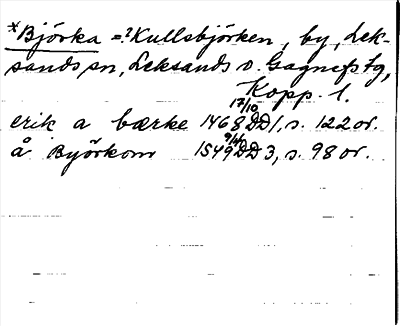 *Björka =? Kullsbjörken, by, Lek-
sands sn, Leksands o. Gagnefs tg,
Kopp. l.
erik a bærke 1468 17/10 DD1, s. 122 or.
å Byörkom 1549 DD3, s. 98 or.